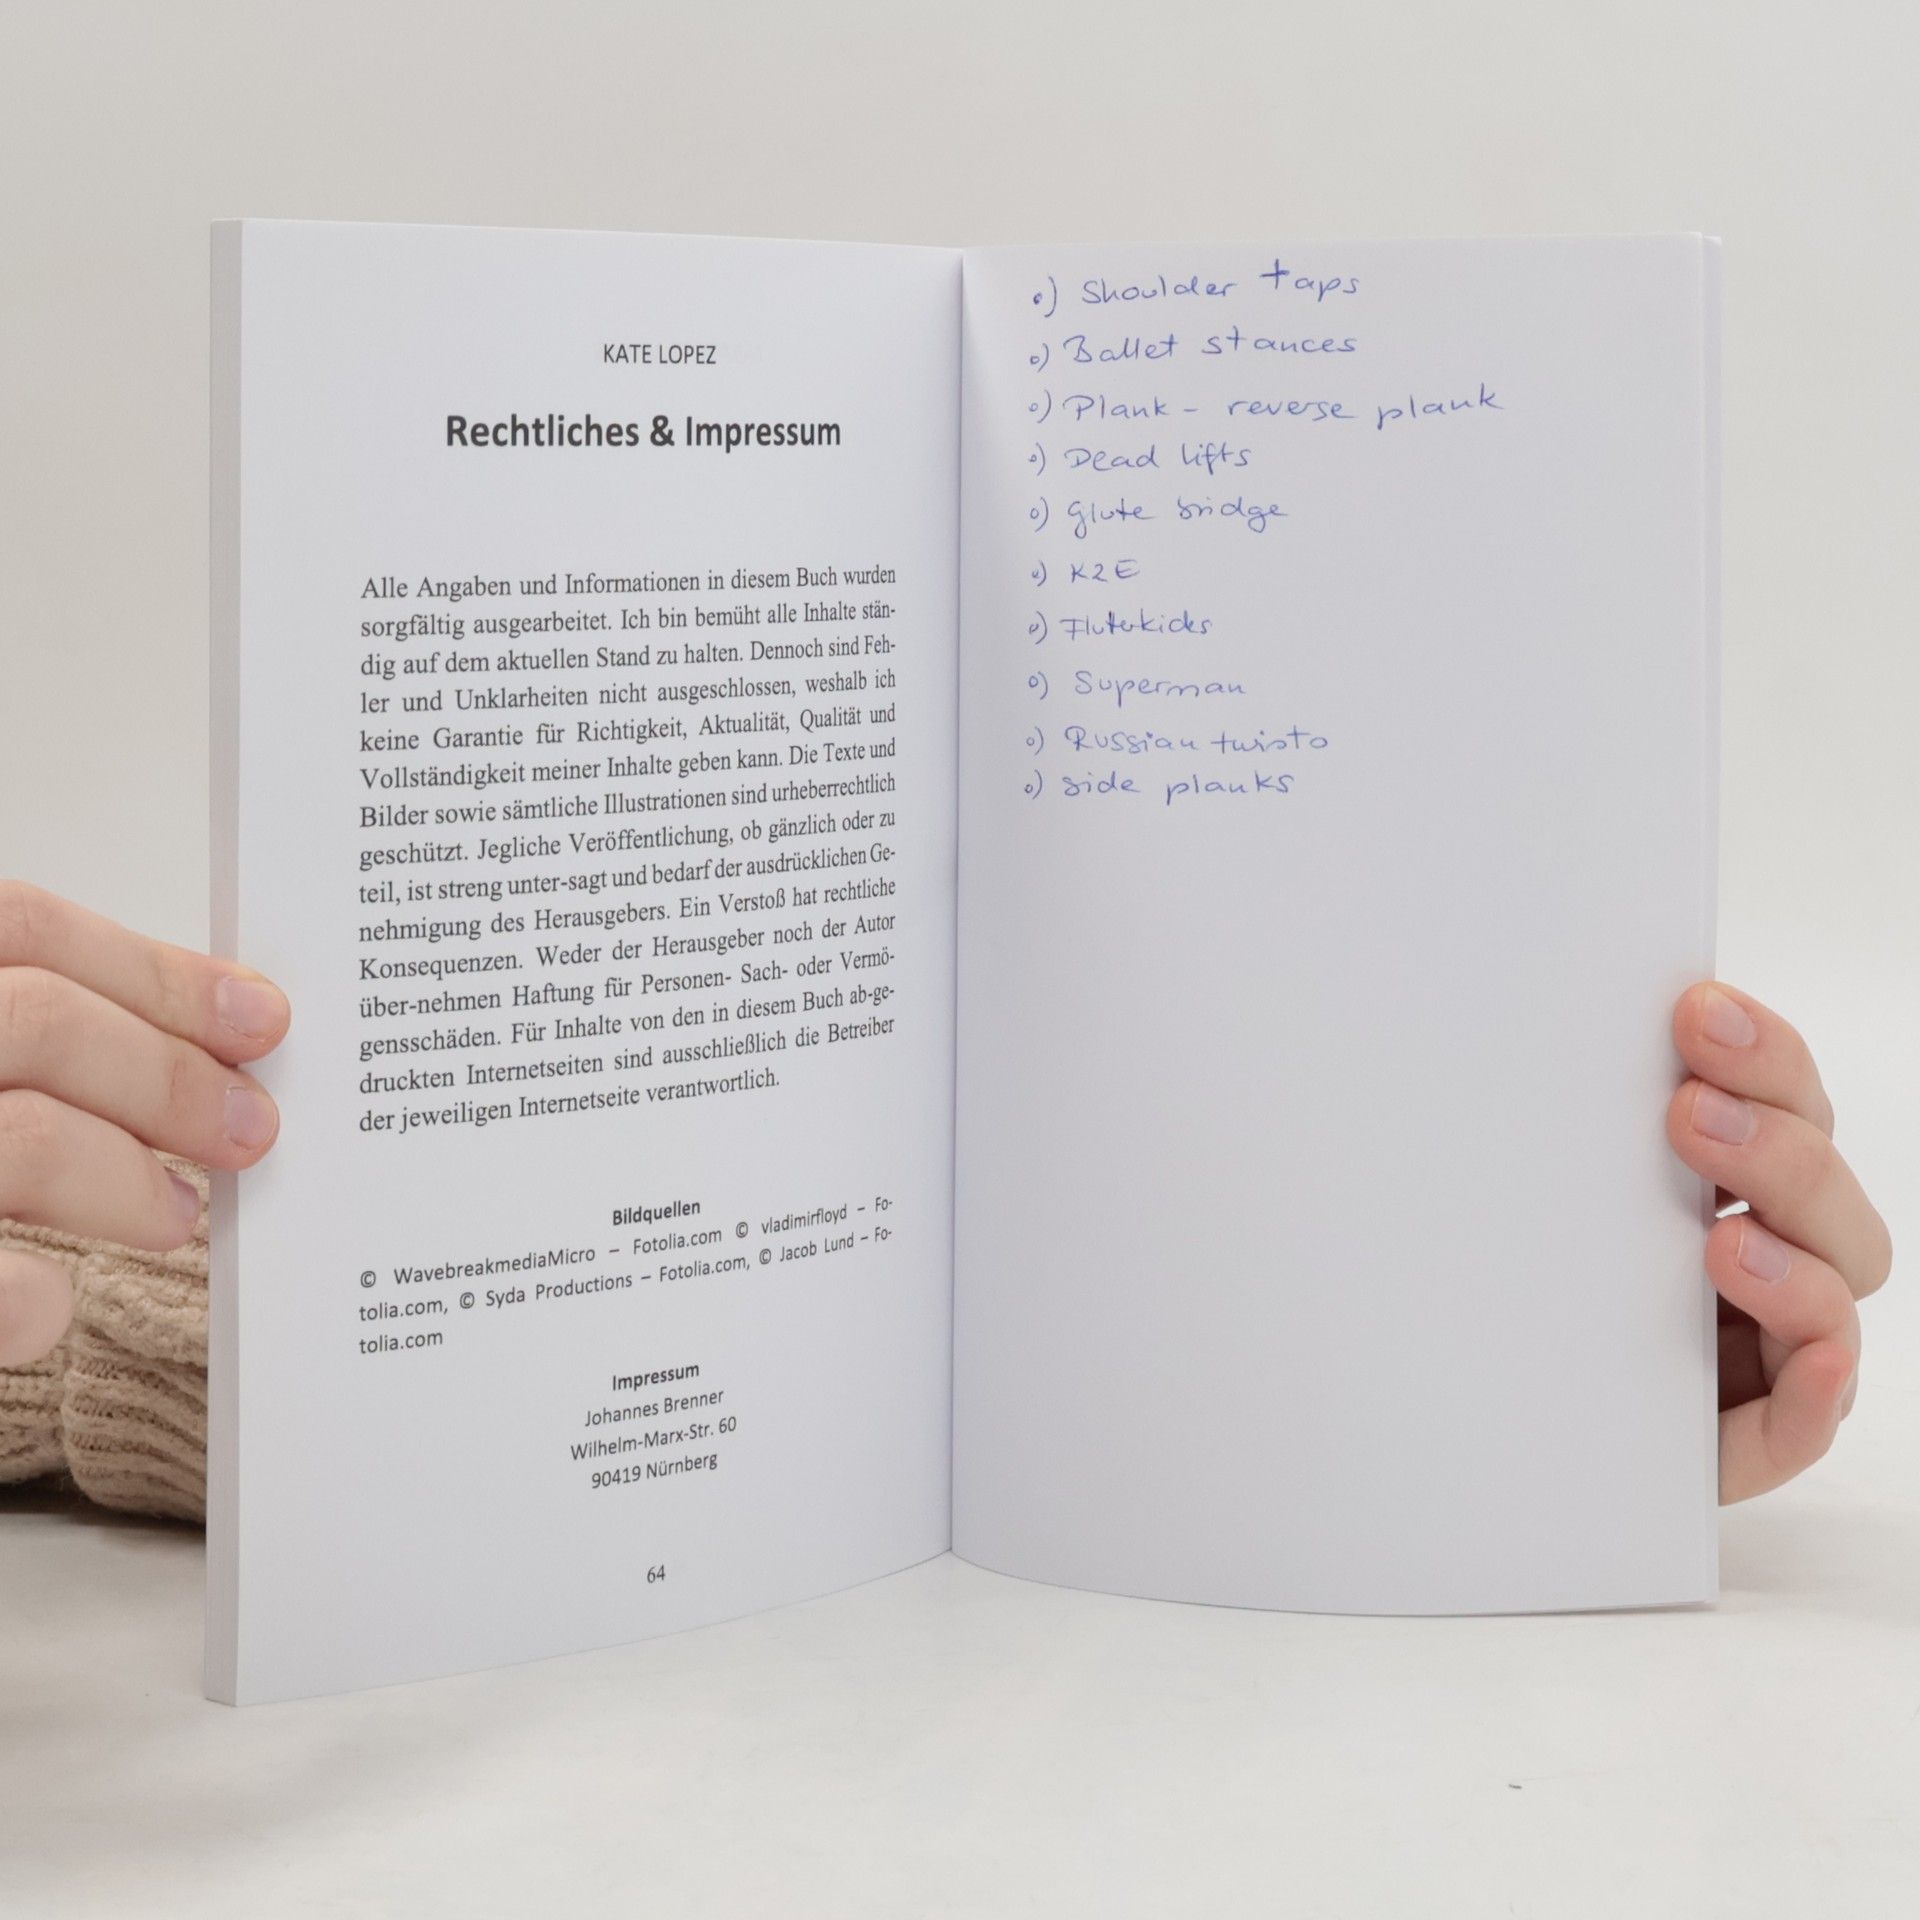 KATE LOPEZ
Rechtliches & Impressum
Alle Angaben und Informationen in diesem Buch wurden
sorgfältig ausgearbeitet. Ich bin bemüht alle Inhalte stän-
dig auf dem aktuellen Stand zu halten. Dennoch sind Feh-
ler und Unklarheiten nicht ausgeschlossen, weshalb ich
keine Garantie für Richtigkeit, Aktualität, Qualität und
Vollständigkeit meiner Inhalte geben kann. Die Texte und
Bilder sowie sämtliche Illustrationen sind urheberrechtlich
geschützt. Jegliche Veröffentlichung, ob gänzlich oder zu
teil, ist streng unter-sagt und bedarf der ausdrücklichen Ge-
nehmigung des Herausgebers. Ein Verstoß hat rechtliche
Konsequenzen. Weder der Herausgeber noch der Autor
über-nehmen Haftung für Personen- Sach- oder Vermö-
gensschäden. Für Inhalte von den in diesem Buch ab-ge-
druckten Internetseiten sind ausschließlich die Betreiber
der jeweiligen Internetseite verantwortlich.
Bildquellen
© WavebreakmediaMicro – Fotolia.com © vladimirfloyd – Fo-
tolia.com, © Syda Productions – Fotolia.com, © Jacob Lund – Fo-
tolia.com
Impressum
Johannes Brenner
Wilhelm-Marx-Str. 60
90419 Nürnberg
64
o) Shoulder taps
o) Ballet stances
o) Plank - reverse plank
o) Dead lifts
o) Glute bridge
o) K2E
o) Flutterkicks
o) Superman
o) Russian twists
o) side planks